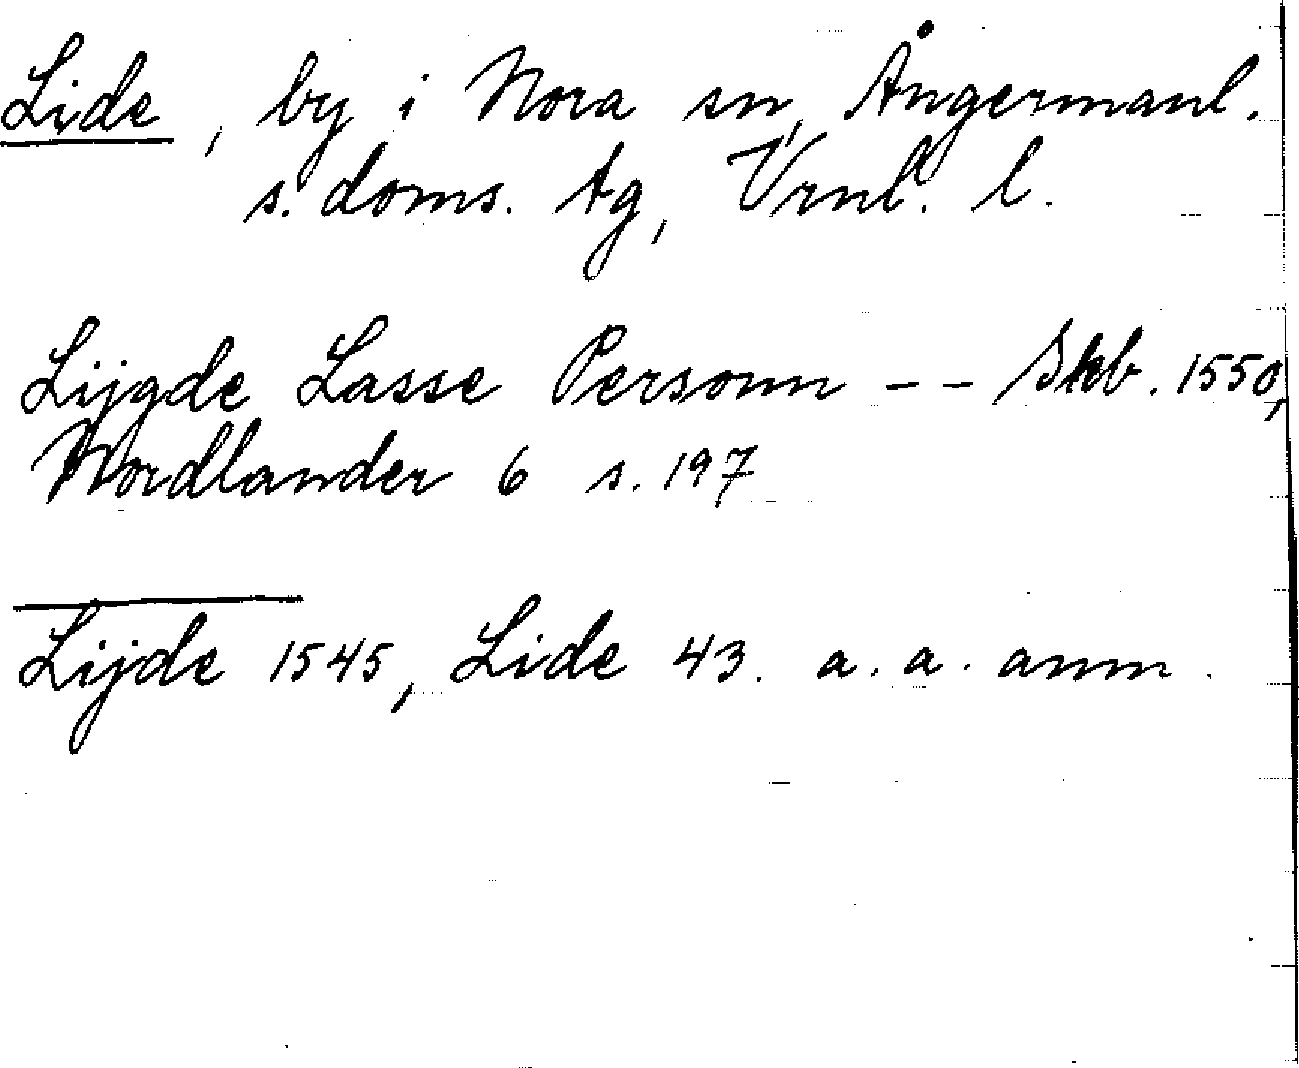 Lide, by i Nora sn, Ångermanl.
s. doms. tg, Vrnl. l.
Lijgde Lasse Personn -- Skb. 1550,
Nordlander 6 s. 197
Lijde 1545, Lide 43. a. a. anm.